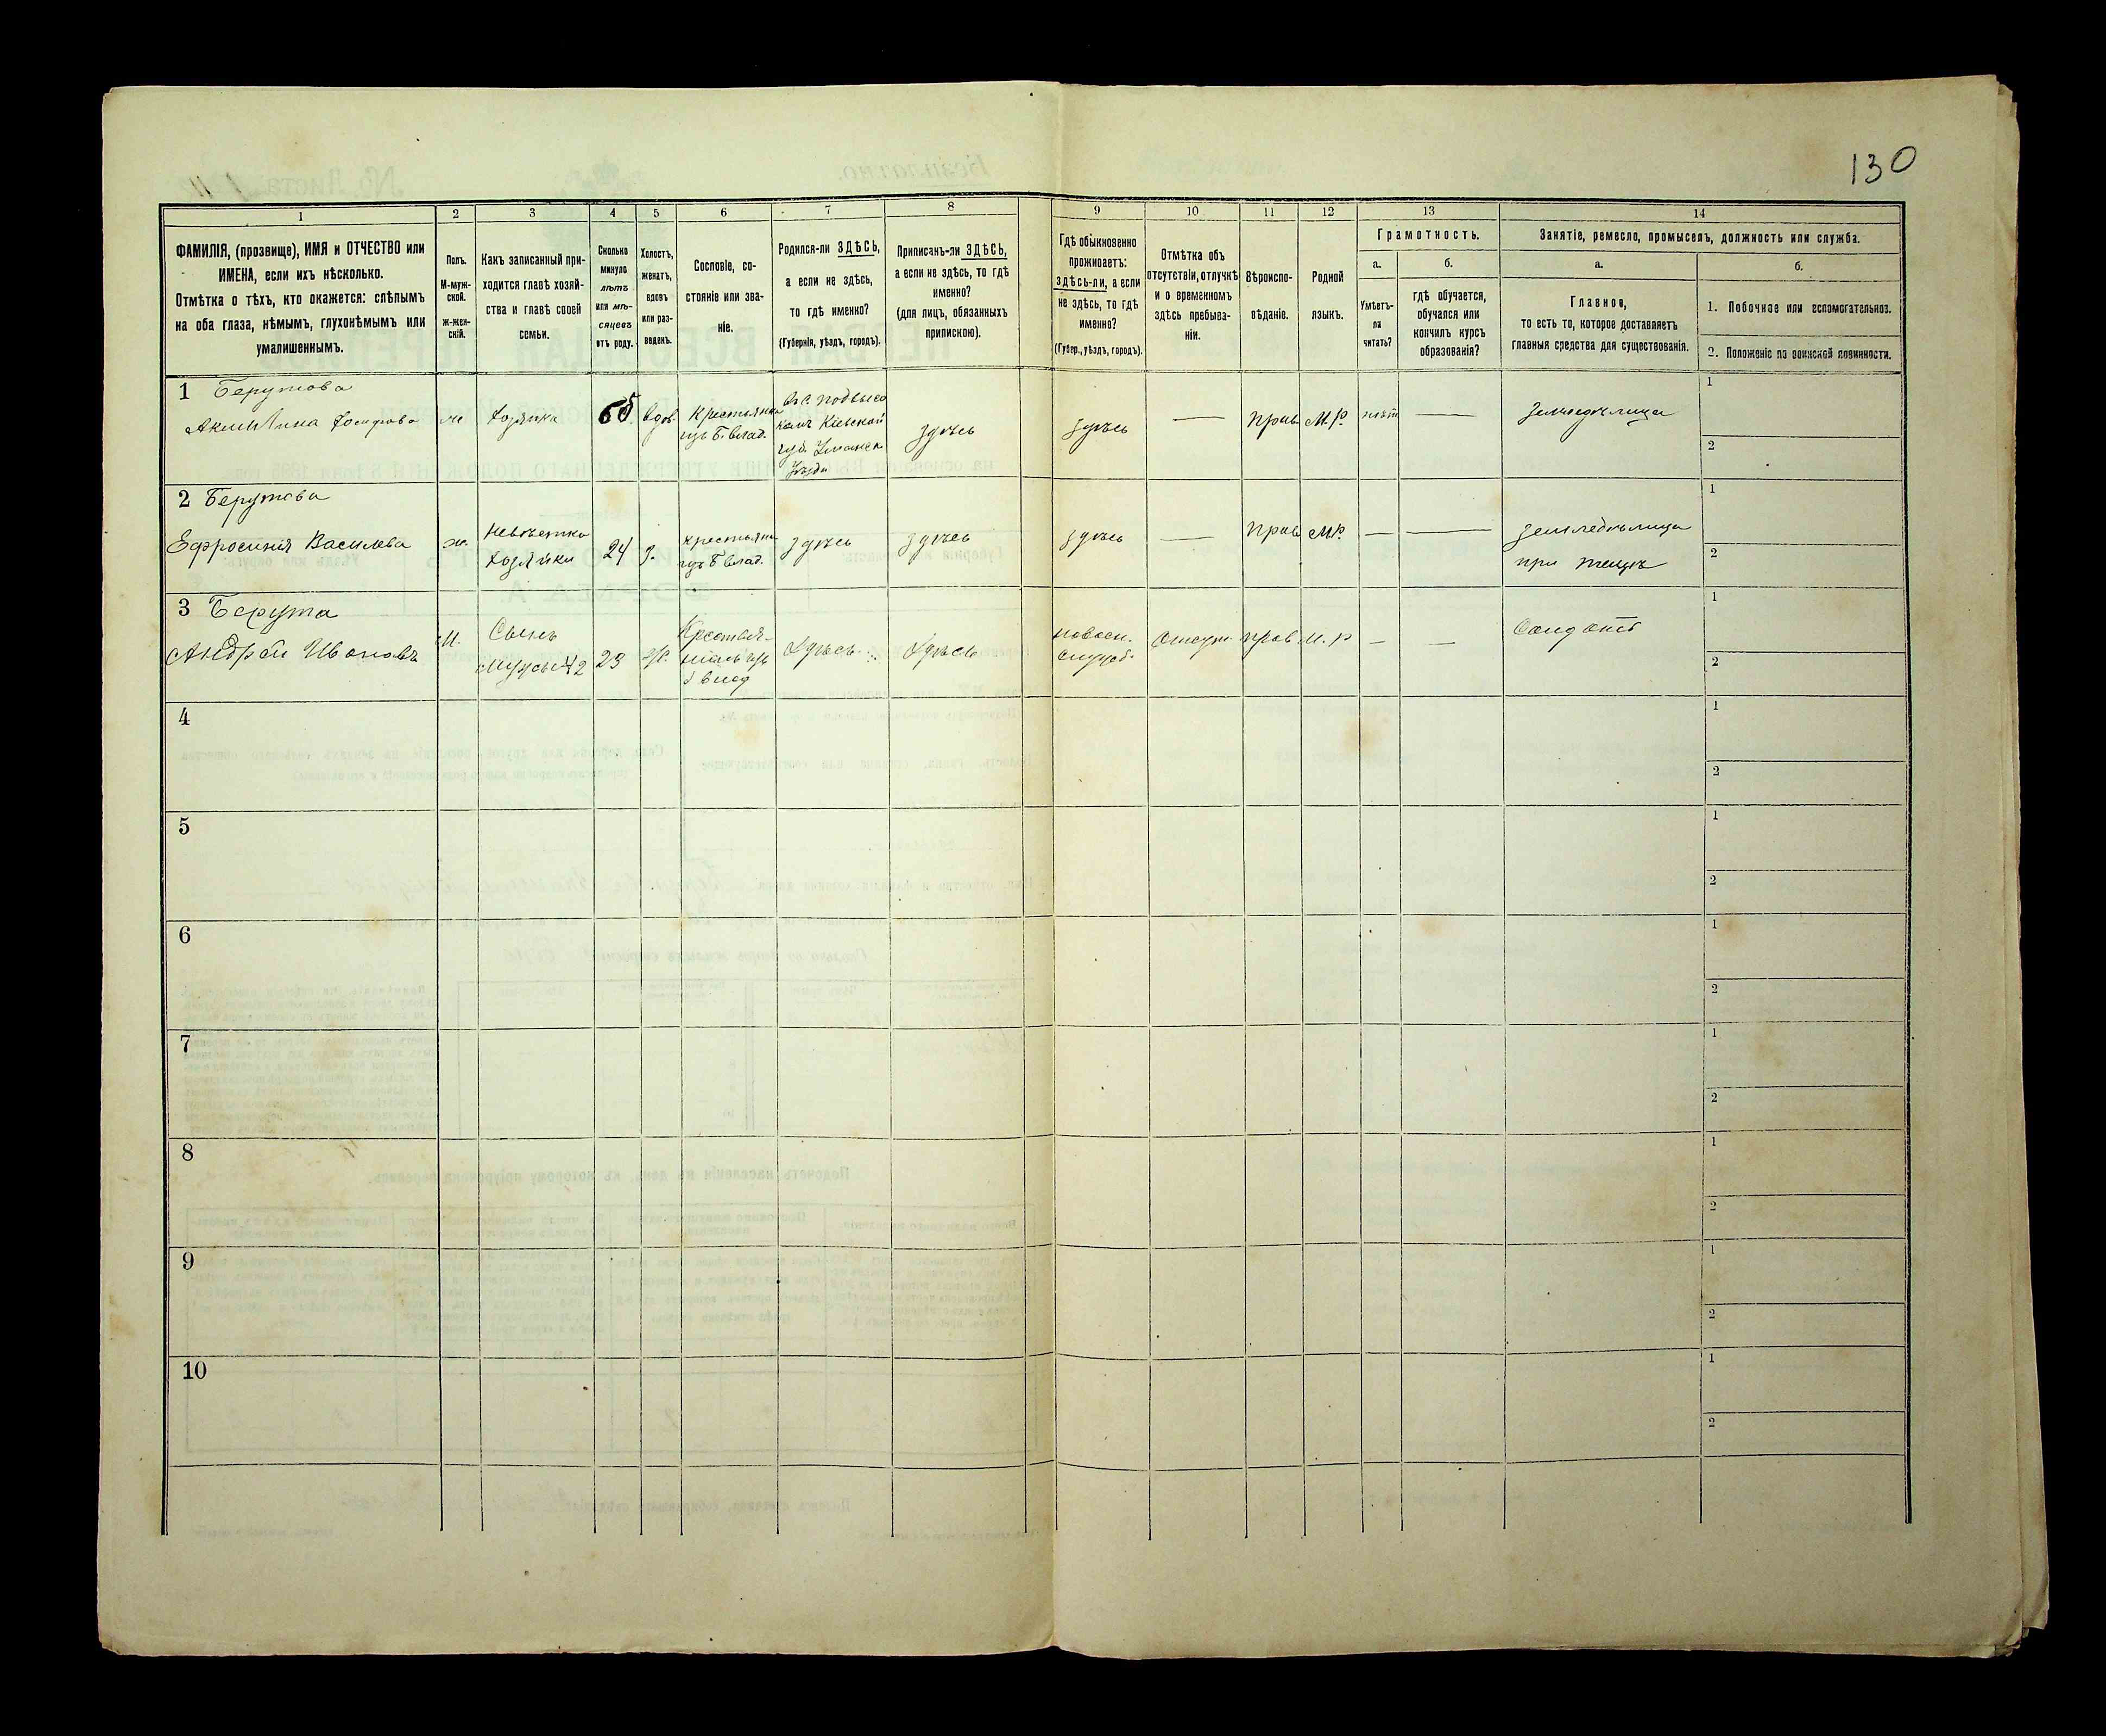 130
1
2
3
4
5
6
7
8
9
10
11
12
13
14
ФАМИЛІЯ, (прозвище), ИМЯ и ОТЧЕСТВО или
ИМЕНА, если ихъ нѣсколько.
Отмѣтка о тѣхъ, кто окажется: слѣпымъ
на оба глаза, нѣмымъ, глухонѣмымъ или
умалишеннымъ.
Полъ.
М-муж-
ской.
ж-жен-
скій.
Какъ записанный при-
ходится главѣ хозяй-
ства и главѣ своей
семьи.
Сколько
минуло
лѣтъ
или мѣ-
сяцевъ
отъ роду.
Холостъ,
женатъ,
вдовъ
или раз-
веденъ.
Сословіе, со-
стояніе или зва-
ніе.
Родился-ли ЗДѢСЬ,
а если не здѣсь,
то гдѣ именно?
(Губернія, уѣздъ, городъ).
Приписанъ-ли ЗДѢСЬ,
а если не здѣсь, то гдѣ
именно?
(для лицъ, обязанныхъ
припискою).
Гдѣ обыкновенно
проживаетъ:
здѣсь-ли, а если
не здѣсь, то гдѣ
именно?
(Губер., уѣздъ, городъ).
Отмѣтка объ
отсутствіи, отлучкѣ
и о временномъ
здѣсь пребыва-
ніи.
Вѣроиспо-
вѣданіе.
Родной
языкъ.
Грамотность.
а.
Умѣетъ-
ли
читать?
б.
гдѣ обучается,
обучался или
кончилъ курсъ
образованія?
Занятіе, ремесло, промыселъ, должность или служба.
а.
Главное,
то есть то, которое доставляетъ
главныя средства для существованія.
б.
1. Побочное или вспомогательное.
2. Положеніе по воинской повинности.
1 Берутова
Акилина
ж
хозяйка
65
вдов.
Крестьянка
изъ б. влад.
въ с. подвысо
Кіевской
губ. Уманск
Уѣзда
здѣсь
здѣсь
—
Прав
М.Р.
нѣт
—
земледѣлица
1
2
2 Берутова
Ефросинія Василева
ж.
невѣстка
хозяйки
24
з.
крестьянка
изъ б влад.
здѣсь
здѣсь
здѣсь
—
Прав
М.Р.
—
—
земледѣлица
при
1
2
3 Берута
Андрей Ивановъ
М.
Сынъ
мужъ №2
23
Крестья-
нинъ изъ
б влад
Здѣсь
Здѣсь
Отсут.
прав
М. Р
—
—
Солдатъ
1
2
4
1
2
5
1
2
6
1
2
7
1
2
8
1
2
9
1
2
10
1
2